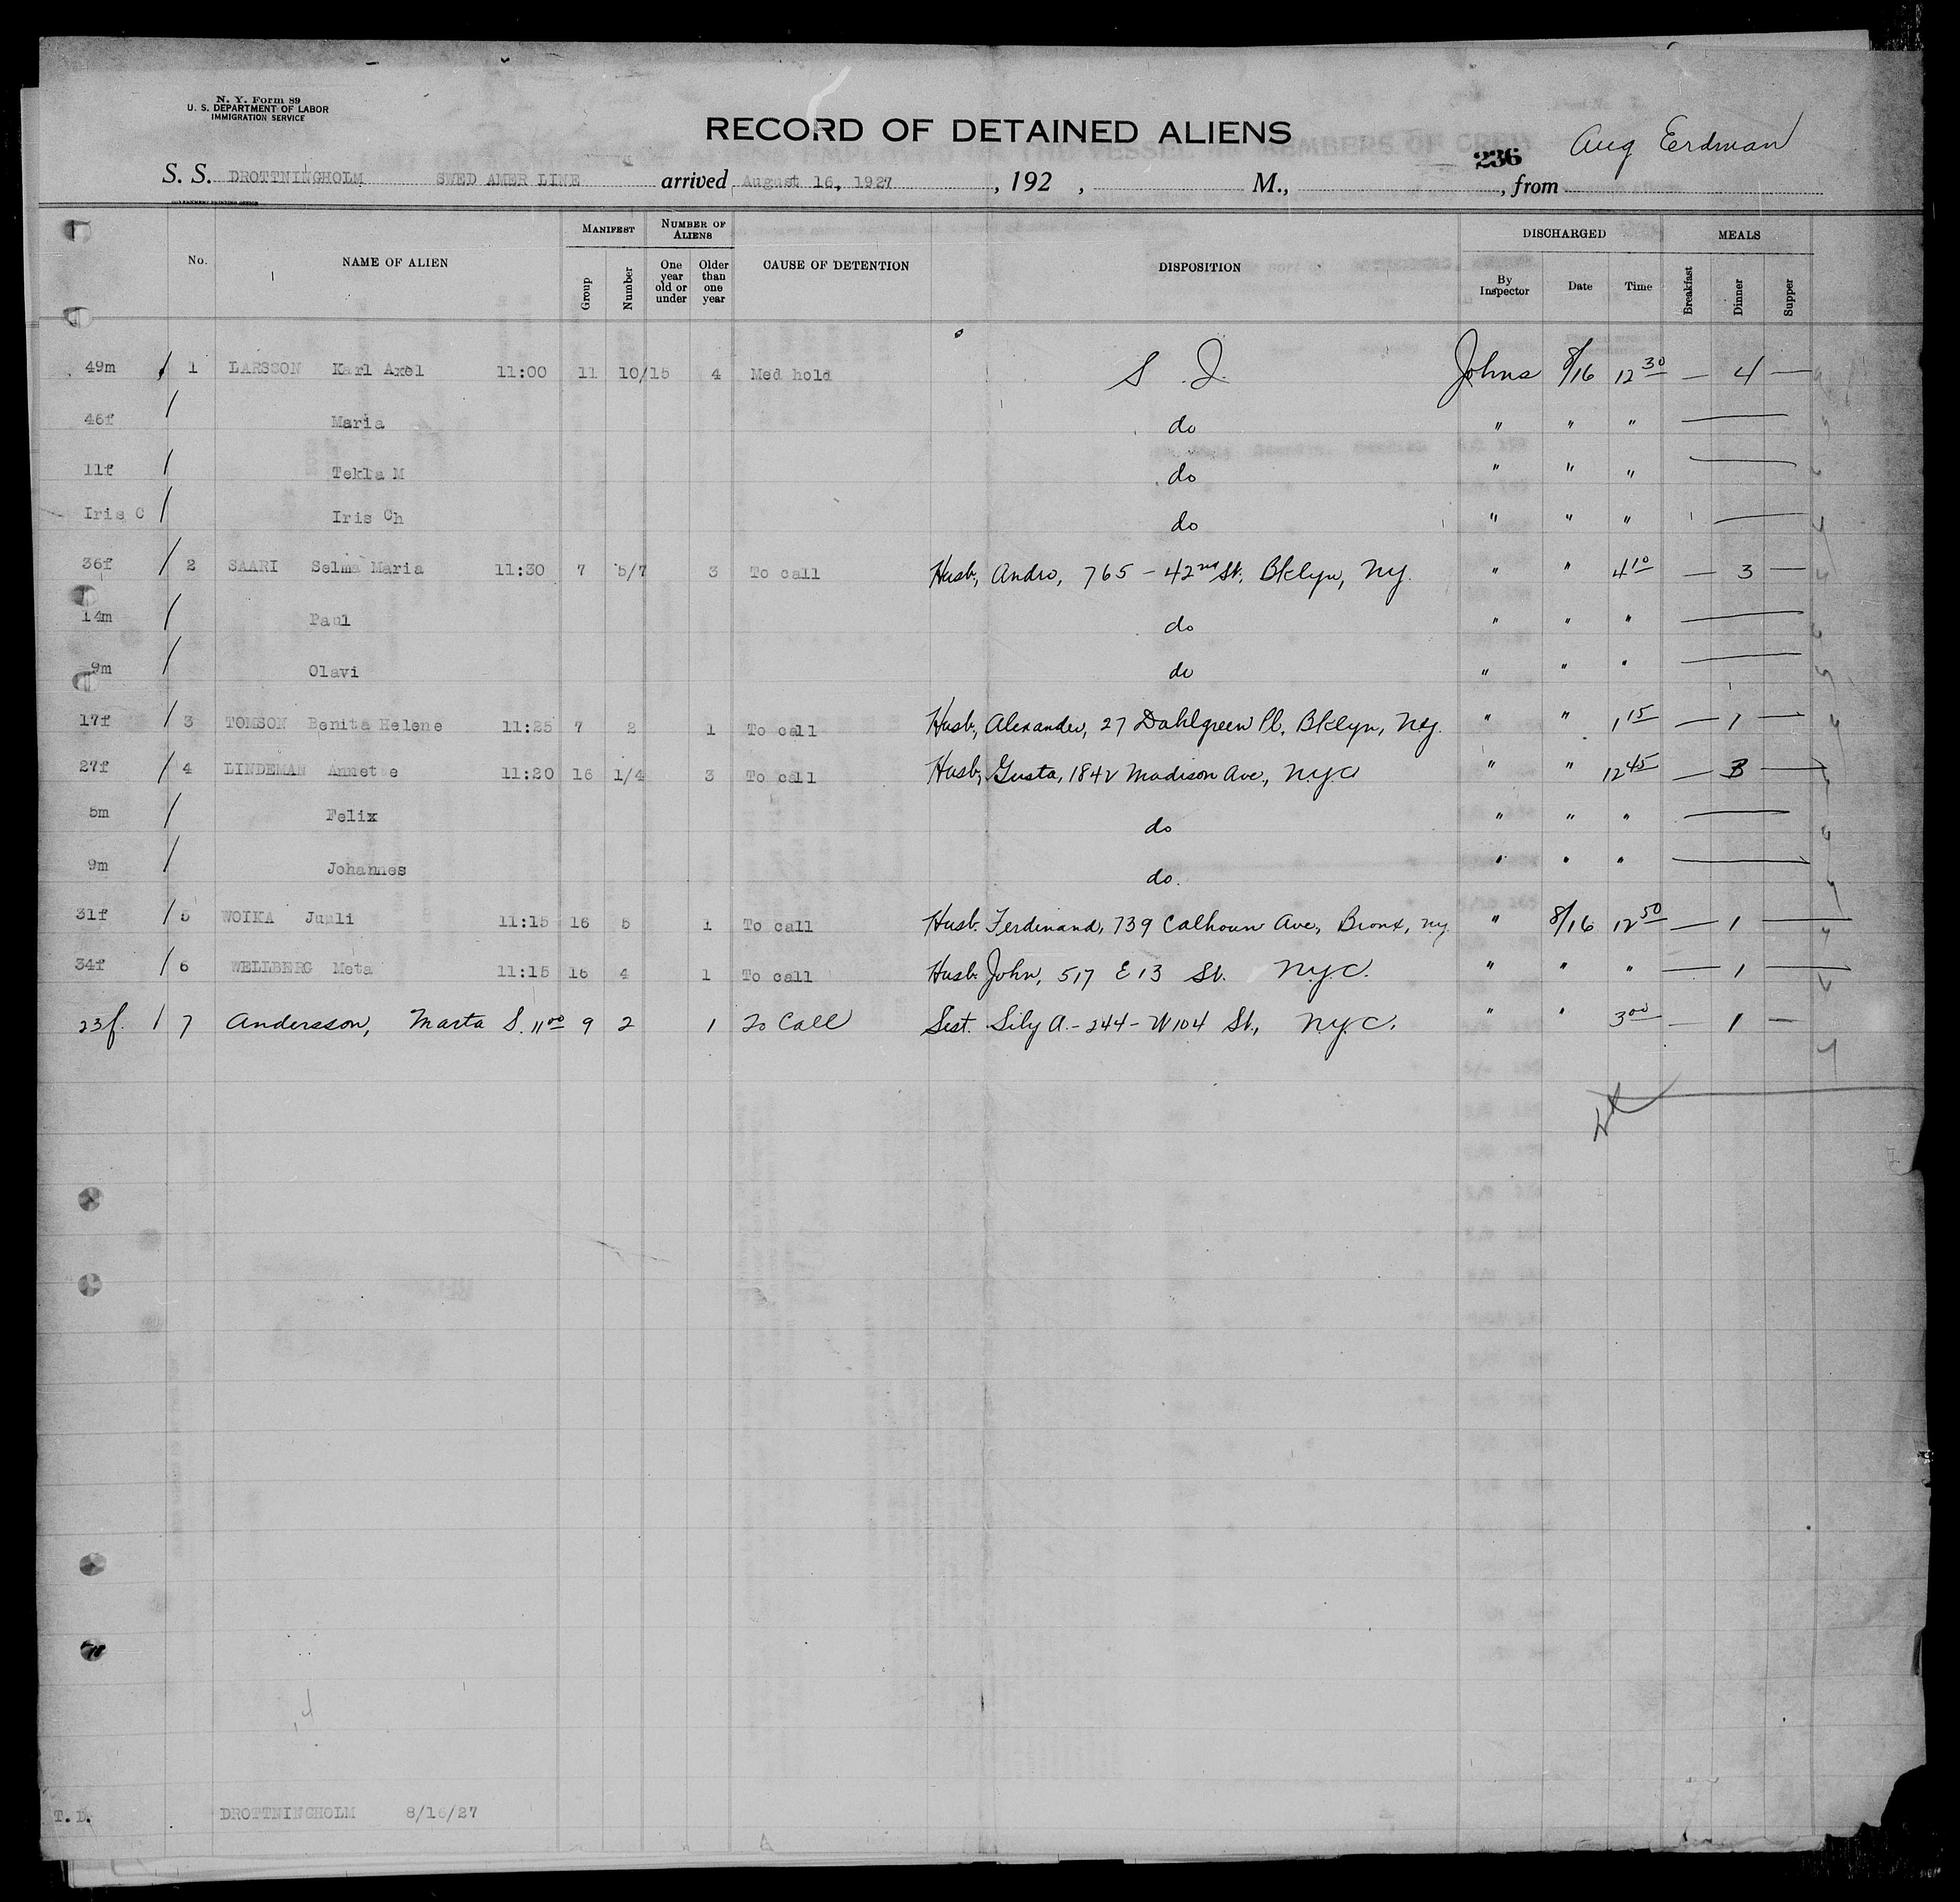 N. Y. Form 89
U. S. DEPARTMENT OF LABOR
IMMIGRATION SERVICE
RECORD OF DETAINED ALIENS
236 Aug Erdman
S. S. DROTTNINGHOLM SWED AMER LINE arrived August 16, 1927, 192 , M., , from
GOVERNMENT PRINTING OFFICE
No. NAME OF ALIEN MANIFEST Group Number NUMBER OF ALIENS One year old or under Older than one year CAUSE OF DETENTION DISPOSITION DISCHARGED By Inspector Date Time MEALS Breakfast Dinner Supper
49m / 1 LARSSON Karl Axel 11:00 11 10/15 4 Med hold S. I. Johns 8/16 12 30 — 4 —
46f / Maria do " " " —
11f / Tekla M do " " " —
Iris C / Iris Ch do " " " —
36f / 2 SAARI Selma Maria 11:30 7 5/7 3 To call Husb, Andro, 765 - 42nd St. Bklyn, Ny. " " 4 10 — 3 —
14m / Paul do " " " —
9m / Olavi do " " " —
17f / 3 TOMSON Benita Helene 11:25 7 2 1 To call Husb, Alexander, 27 Dahlgreen Pl, Bklyn, Ny. " " 1 15 — 1 —
27f / 4 LINDEMAN Annette 11:20 16 1/4 3 To call Husb, Gusta, 1842 Madison Ave, NyC " " 12 45 — 3 —
5m / Felix do " " " —
9m / Johannes do. " " " —
31f / 5 WOIKA Juuli 11:15 16 5 1 To call Husb. Ferdinand, 739 Calhoun Ave, Bronx, ny. " 8/16 12 50 — 1 —
34f / 6 WELLBERG Meta 11:15 16 4 1 To call Husb. John, 517 E 13 St. NyC. " " " — 1 —
23f. / 7 Andersson, Marta S. 11 00 9 2 1 To Call Sist. Lily A. - 244 - W 104 St., NyC. " " 3 00 — 1 —
T. D. DROTTNINGHOLM 8/16/27